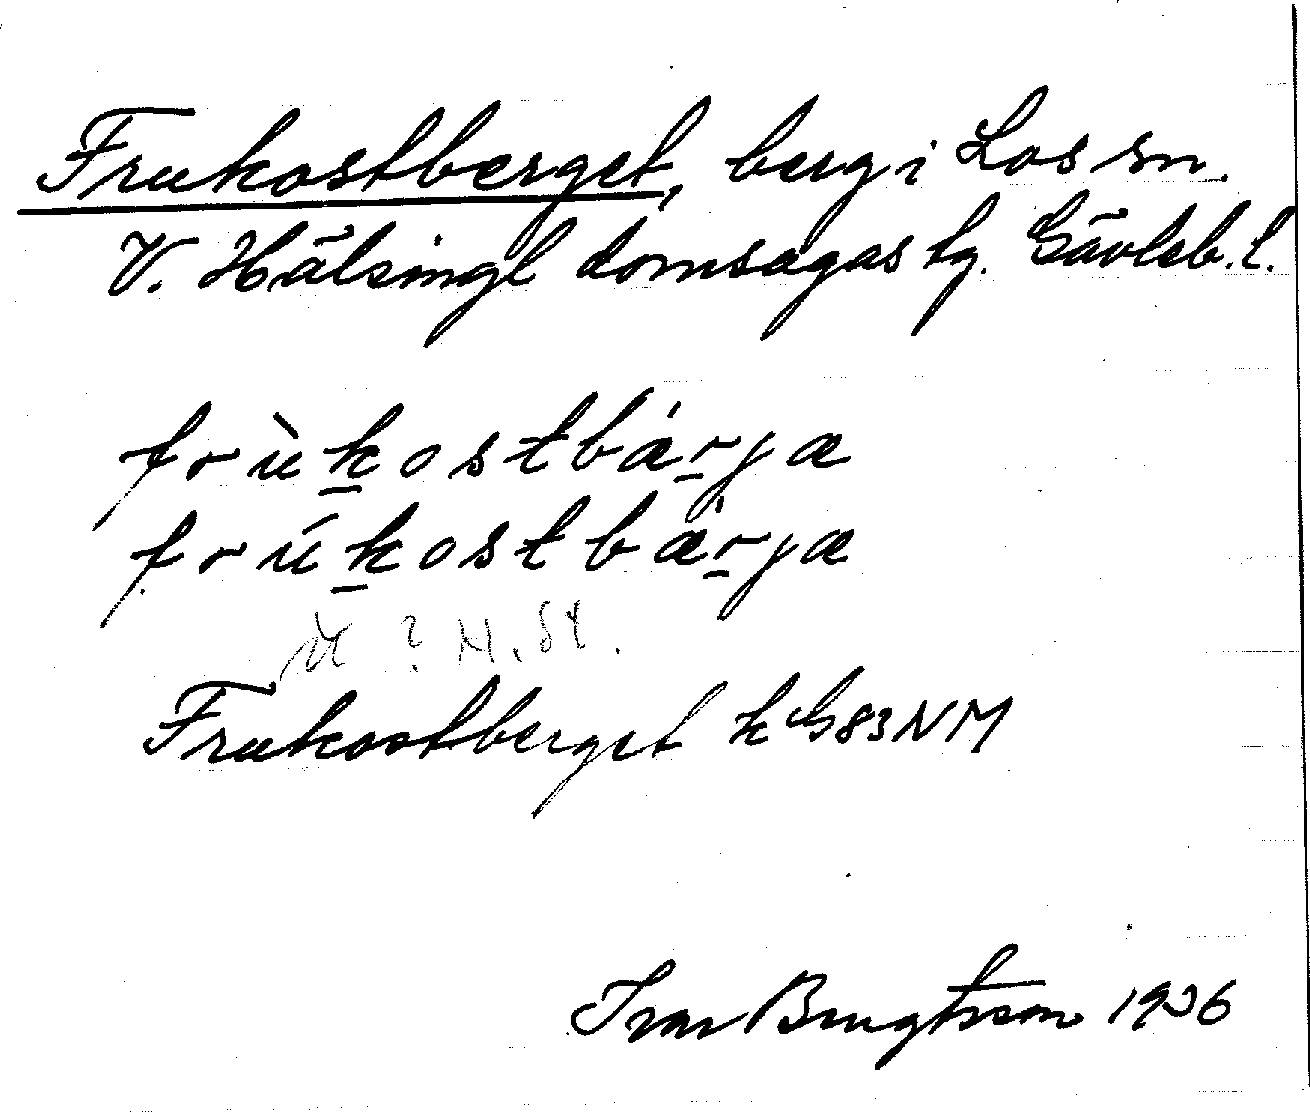 Frukostberget, berg i Los sn.
V. Hälsingl domsagas tg. Gävleb. l.
frùkostbá̈rja
frúkostbä̀rja
? M. St.
Frukostberget k G83NM
Ivar Bengtsson 1936